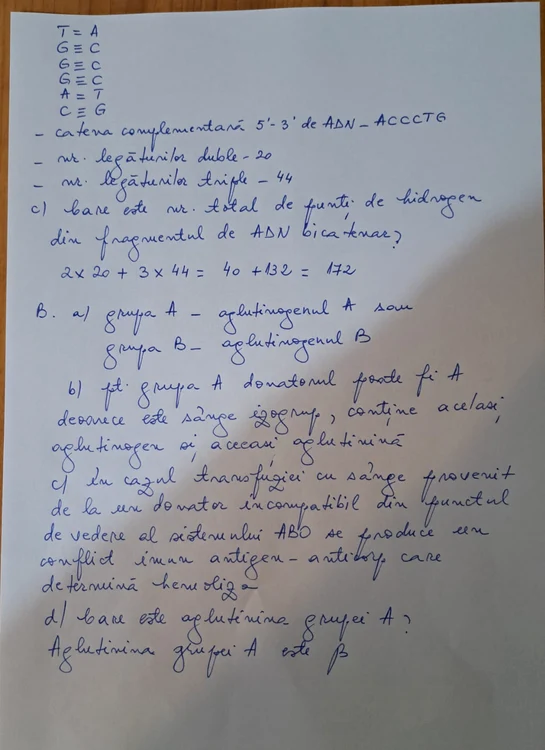 T = A
G ≡ C
G ≡ C
G ≡ C
A = T
C ≡ G
- catena complementară 5'-3' de ADN - ACCCTG
- nr. legăturilor duble - 20
- nr. legăturilor triple - 44
c) Care este nr. total de punți de hidrogen
din fragmentul de ADN bicatenar?
2 x 20 + 3 x 44 = 40 + 132 = 172
B. a) grupa A - aglutinogenul A sau
grupa B - aglutinogenul B
b) pt. grupa A donatorul poate fi A
deoarece este sânge izogrup, conține același
aglutinogen și aceeași aglutinină
c) în cazul transfuziei cu sânge provenit
de la un donator incompatibil din punctul
de vedere al sistemului ABO se produce un
conflict imun antigen - anticorp care
determină hemoliza
d) Care este aglutinina grupei A?
Aglutinina grupei A este β